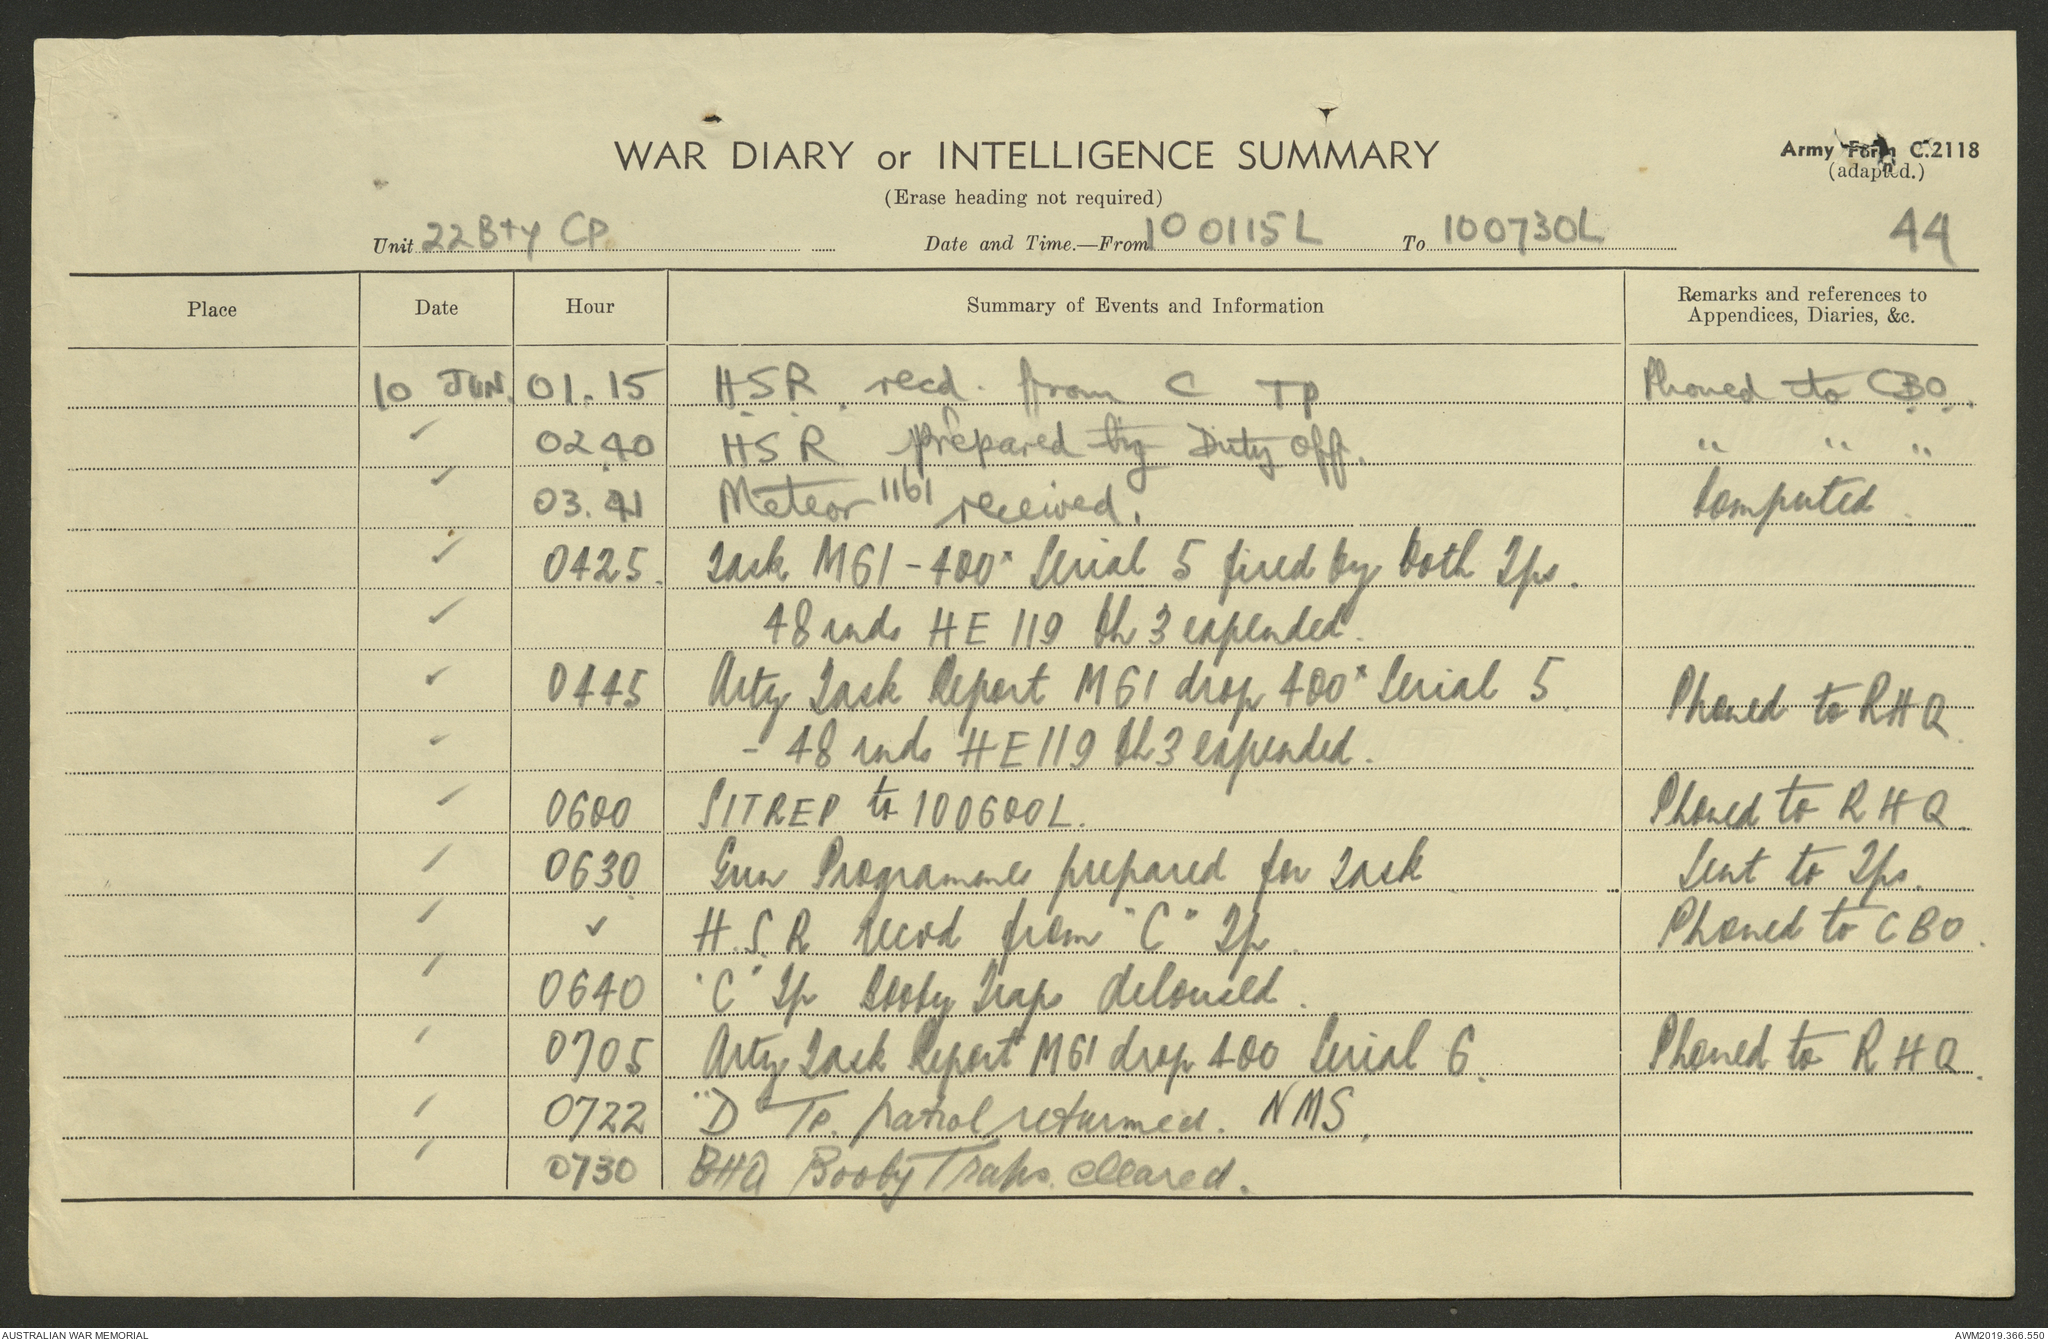 WAR DIARY or INTELLIGENCE SUMMARY
Army Form C.2118
(adapted.)
(Erase heading not required)
Unit 22 Bty CP Date and Time.—From 100115L To 100730L 44
Place Date Hour Summary of Events and Information Remarks and references to Appendices, Diaries, &c.
10 JUN. 01.15 H.S.R. recd. from C TP Phoned to CBO.
✓ 0240 HSR prepared by Duty Off. " " "
✓ 03.41 Meteor 1161 received. Computed.
✓ 0425. Task M61 - 400x Serial 5 fired by both Tps.
✓ 48 rnds HE 119 Ch 3 expended.
✓ 0445 Arty Task Report M61 drop 400x Serial 5 Phoned to RHQ.
✓ - 48 rnds HE 119 Ch 3 expended.
✓ 0600 SITREP to 100600L. Phoned to RHQ.
✓ 0630 Gun Programmes prepared for Task Sent to Tps.
✓ ✓ H.S.R recvd from "C" Tp. Phoned to CBO.
✓ 0640 "C" Tp Booby Traps deloused.
✓ 0705 Arty Task Report M61 drop 400 Serial 6. Phoned to RHQ.
✓ 0722 "D" Tp. patrol returned. NMS.
✓ 0730 BHQ Booby Traps cleared.
AUSTRALIAN WAR MEMORIAL
AWM2019.366.550